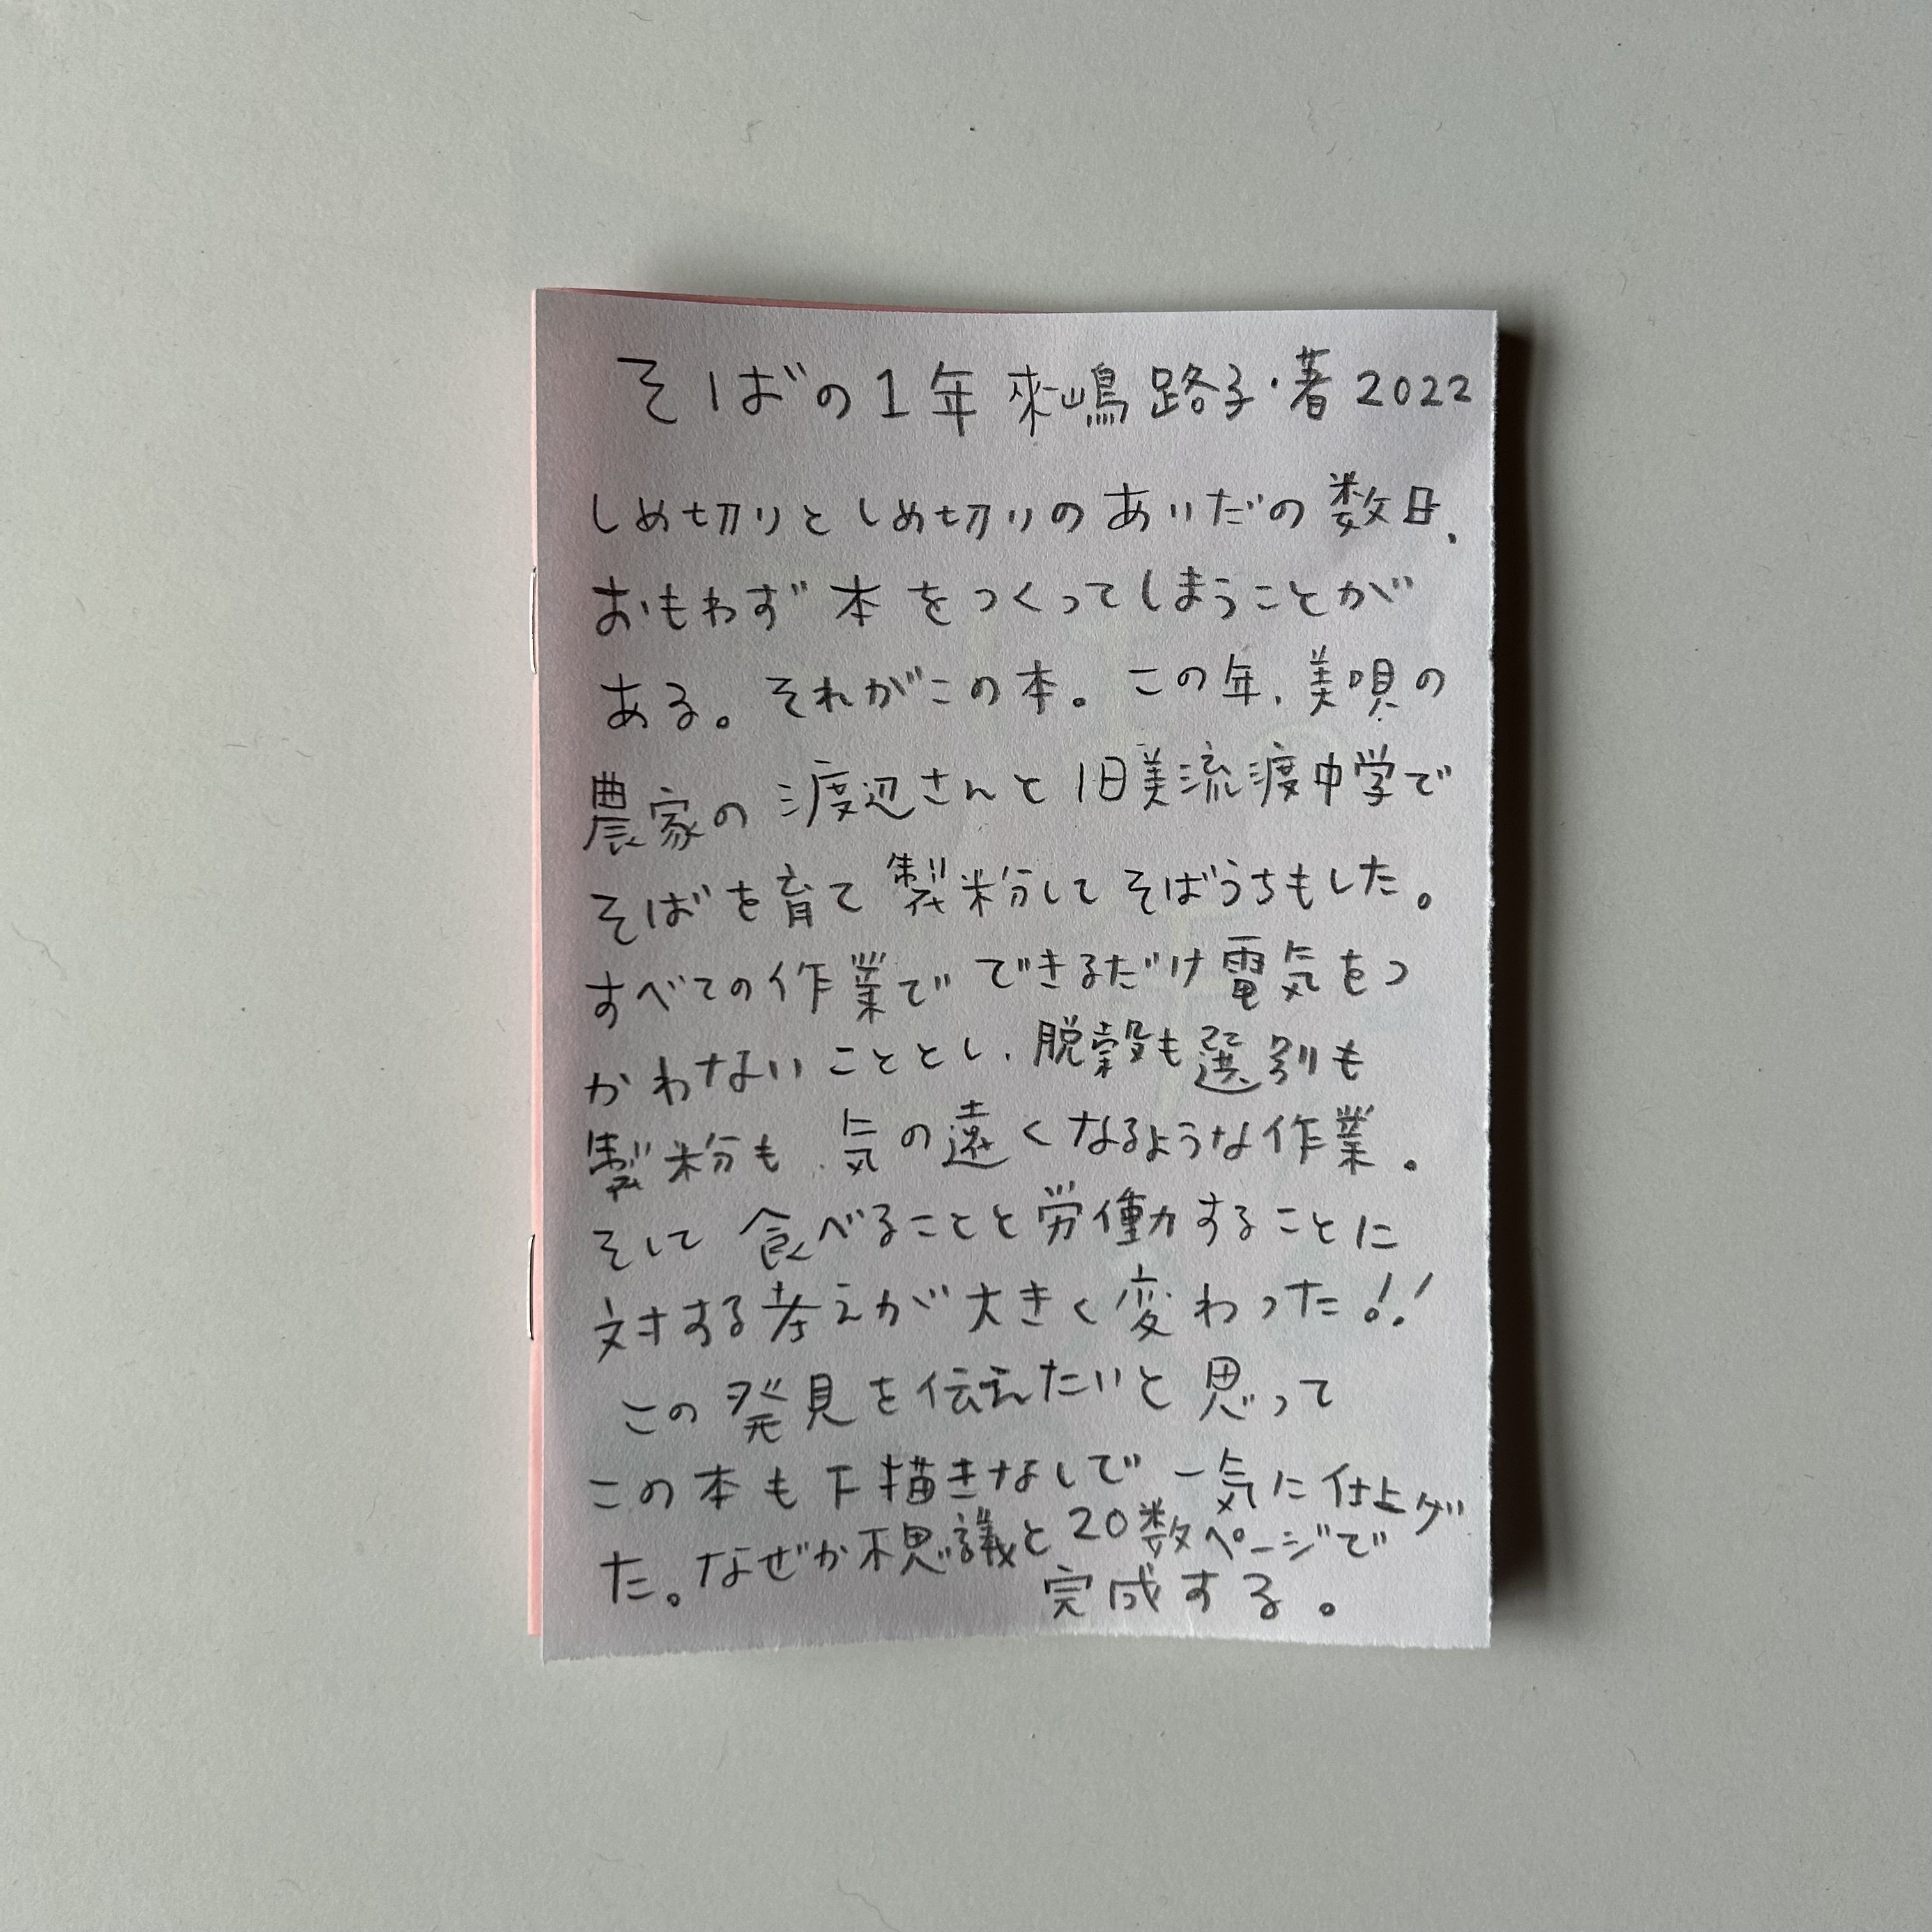 そばの1年 來嶋路子・著 2022
しめ切りとしめ切りのあいだの数日、
おもわず本をつくってしまうことが
ある。それがこの本。この年、美唄の
農家の渡辺さんと旧美流渡中学で
そばを育て製粉してそばうちもした。
すべての作業でできるだけ電気をつ
かわないこととし、脱穀も選別も
製粉も、気の遠くなるような作業。
そして食べることと労働することに
対する考えが大きく変わった!!
この発見を伝えたいと思って
この本も下描きなしで一気に仕上げ
た。なぜか不思議と20数ページで
完成する。